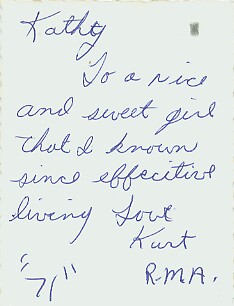 Kathy
To a nice
and sweet girl
that I known
since effecitive
living Love
Kurt
"71" R.M.A.